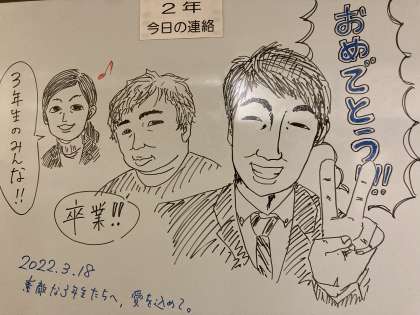 ２年
今日の連絡
３年生のみんな!!
卒業!!
おめでとう!!
2022.3.18
素敵な3年生たちへ、愛を込めて。